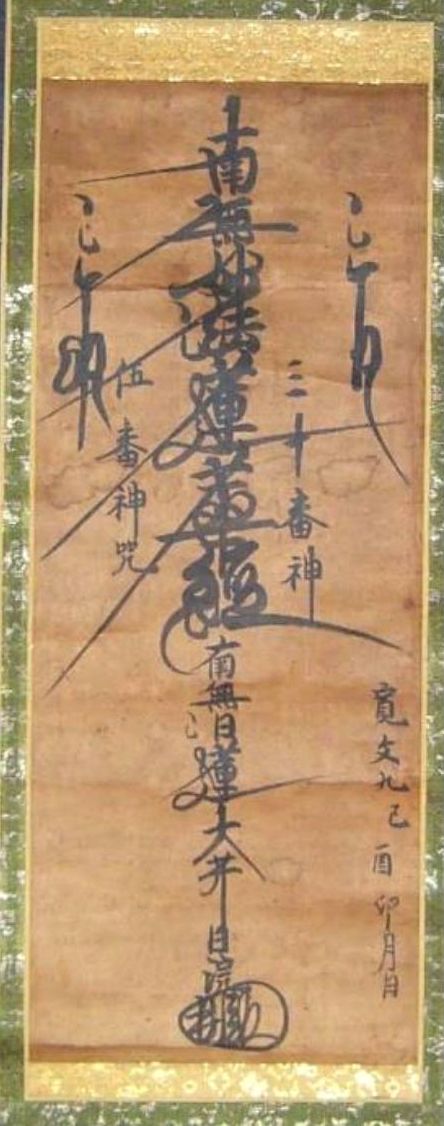 三十番神
寛文九己酉卯月日
南無妙法蓮華経
南無日蓮大井
伍番神咒